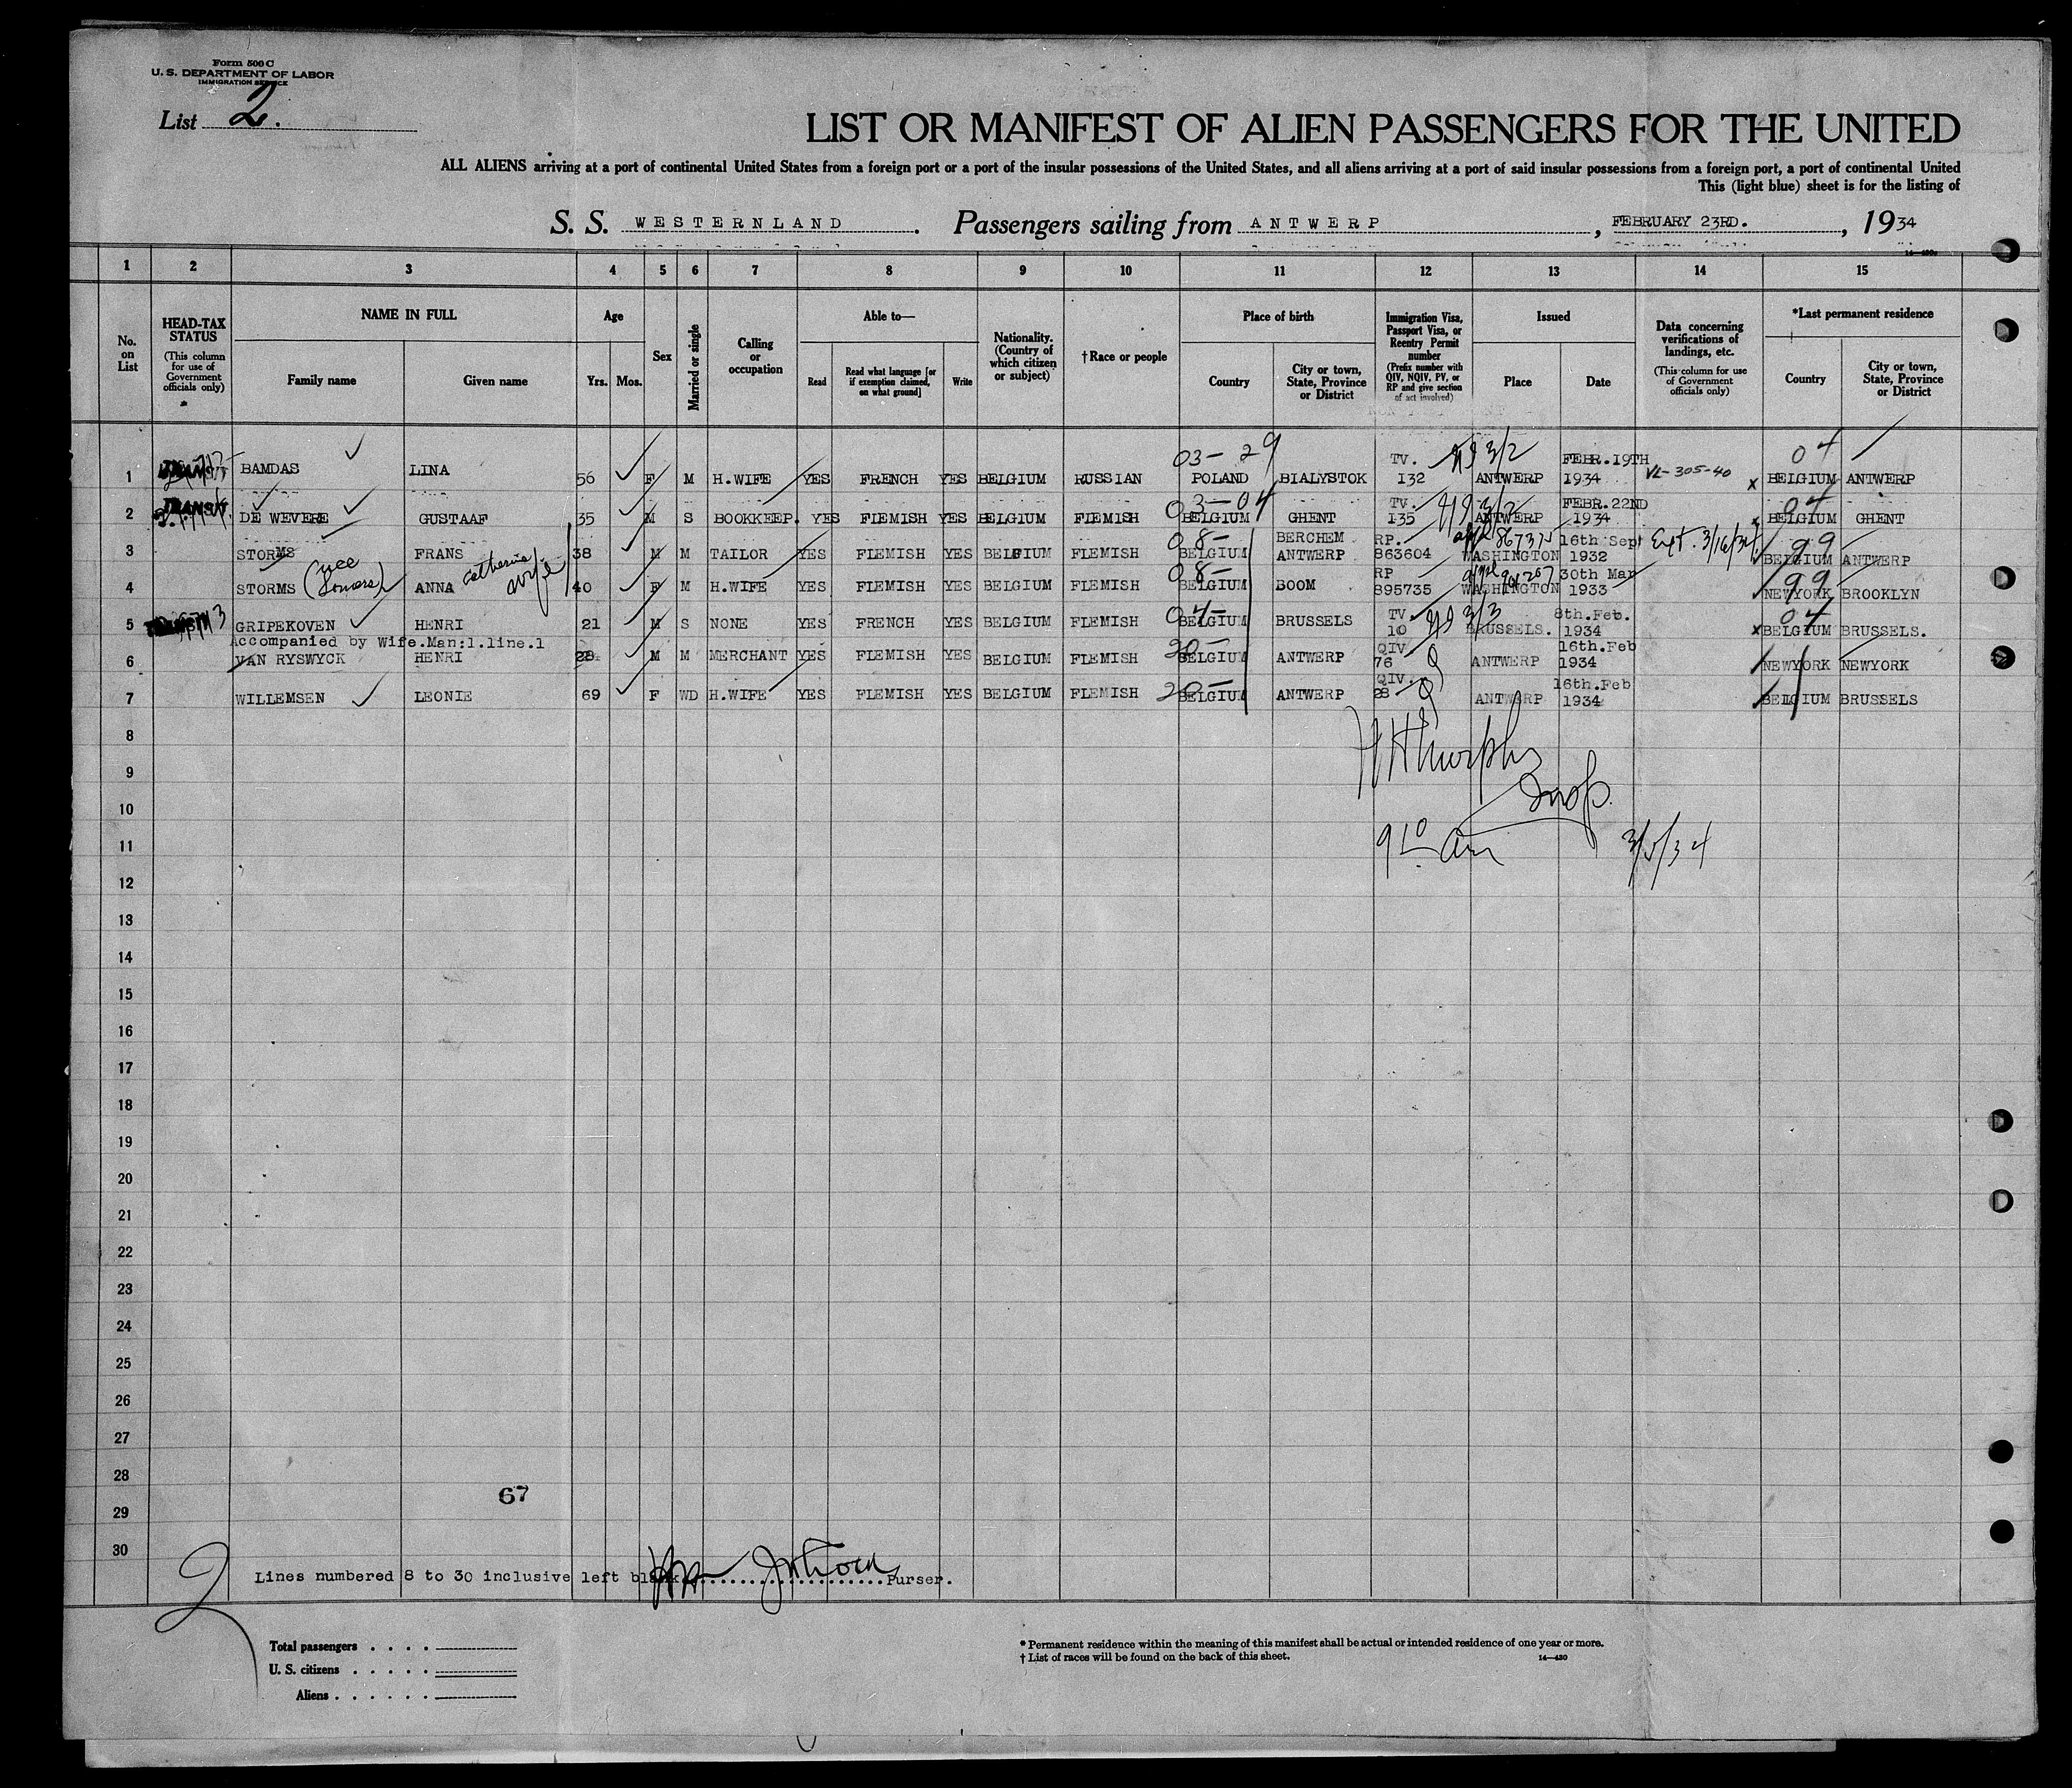 Form 500 C
U. S. DEPARTMENT OF LABOR
IMMIGRATION SERVICE
List 2.
LIST OR MANIFEST OF ALIEN PASSENGERS FOR THE UNITED
ALL ALIENS arriving at a port of continental United States from a foreign port or a port of the insular possessions of the United States, and all aliens arriving at a port of said insular possessions from a foreign port, a port of continental United
This (light blue) sheet is for the listing of
S. S. WESTERNLAND. Passengers sailing from ANTWERP, FEBRUARY 23RD., 1934
1 2 3 4 5 6 7 8 9 10 11 12 13 14 15
No. on List
HEAD-TAX STATUS (This column for use of Government officials only)
NAME IN FULL
Family name
Given name
Age
Yrs. Mos.
Sex
Married or single
Calling or occupation
Able to—
Read
Read what language [or if exemption claimed, on what ground]
Write
Nationality. (Country of which citizen or subject)
† Race or people
Place of birth
Country
City or town, State, Province or District
Immigration Visa, Passport Visa, or Reentry Permit number (Prefix number with QIV, NQIV, PV, or RP and give section of act involved)
Issued
Place
Date
Data concerning verifications of landings, etc. (This column for use of Government officials only)
*Last permanent residence
Country
City or town, State, Province or District
03-29 04
1 BAMDAS LINA 56 F M H.WIFE YES FRENCH YES BELGIUM RUSSIAN POLAND BIALYSTOK TV. 132 ANTWERP FEBR.19TH 1934 VL-305-40 x BELGIUM ANTWERP
03-04 04
2 TRANSIT DE WEVERE GUSTAAF 35 M S BOOKKEEP. YES FLEMISH YES BELGIUM FLEMISH BELGIUM GHENT TV. 135 ANTWERP FEBR.22ND 1934 x BELGIUM GHENT
08- 99
3 STORMS FRANS 38 M M TAILOR YES FLEMISH YES BELGIUM FLEMISH BELGIUM BERCHEM ANTWERP RP. 863604 867375 WASHINGTON 16th Sept 1932 Ext. 3/16/34 BELGIUM ANTWERP
08- 99
4 STORMS (nee ANNA Catherine wife 40 F M H.WIFE YES FLEMISH YES BELGIUM FLEMISH BELGIUM BOOM RP 895735 WASHINGTON 30th Mar 1933 NEWYORK BROOKLYN
04- 04
5 GRIPEKOVEN HENRI 21 M S NONE YES FRENCH YES BELGIUM FLEMISH BELGIUM BRUSSELS TV. 10 3/3 BRUSSELS. 8th.Feb. 1934 x BELGIUM BRUSSELS.
Accompanied by Wife.Man:1.line.1
6 VAN RYSWYCK HENRI 28 M M MERCHANT YES FLEMISH YES BELGIUM FLEMISH 20- BELGIUM ANTWERP QIV 76 Q ANTWERP 16th.Feb 1934 NEWYORK NEWYORK
7 WILLEMSEN LEONIE 69 F WD H.WIFE YES FLEMISH YES BELGIUM FLEMISH 20- BELGIUM ANTWERP QIV. 28 Q ANTWERP 16th.Feb 1934 BELGIUM BRUSSELS
8
Murphy
9
Insp.
10
11 9 10 am 3/5/34
12
13
14
15
16
17
18
19
20
21
22
23
24
25
26
27
28
67
29
30
2 Lines numbered 8 to 30 inclusive left blank. Purser.
Total passengers
U. S. citizens
Aliens
* Permanent residence within the meaning of this manifest shall be actual or intended residence of one year or more.
† List of races will be found on the back of this sheet.
14—430